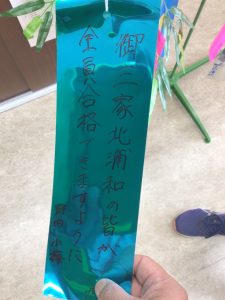 御三家北浦和の皆が
全員合格できますように